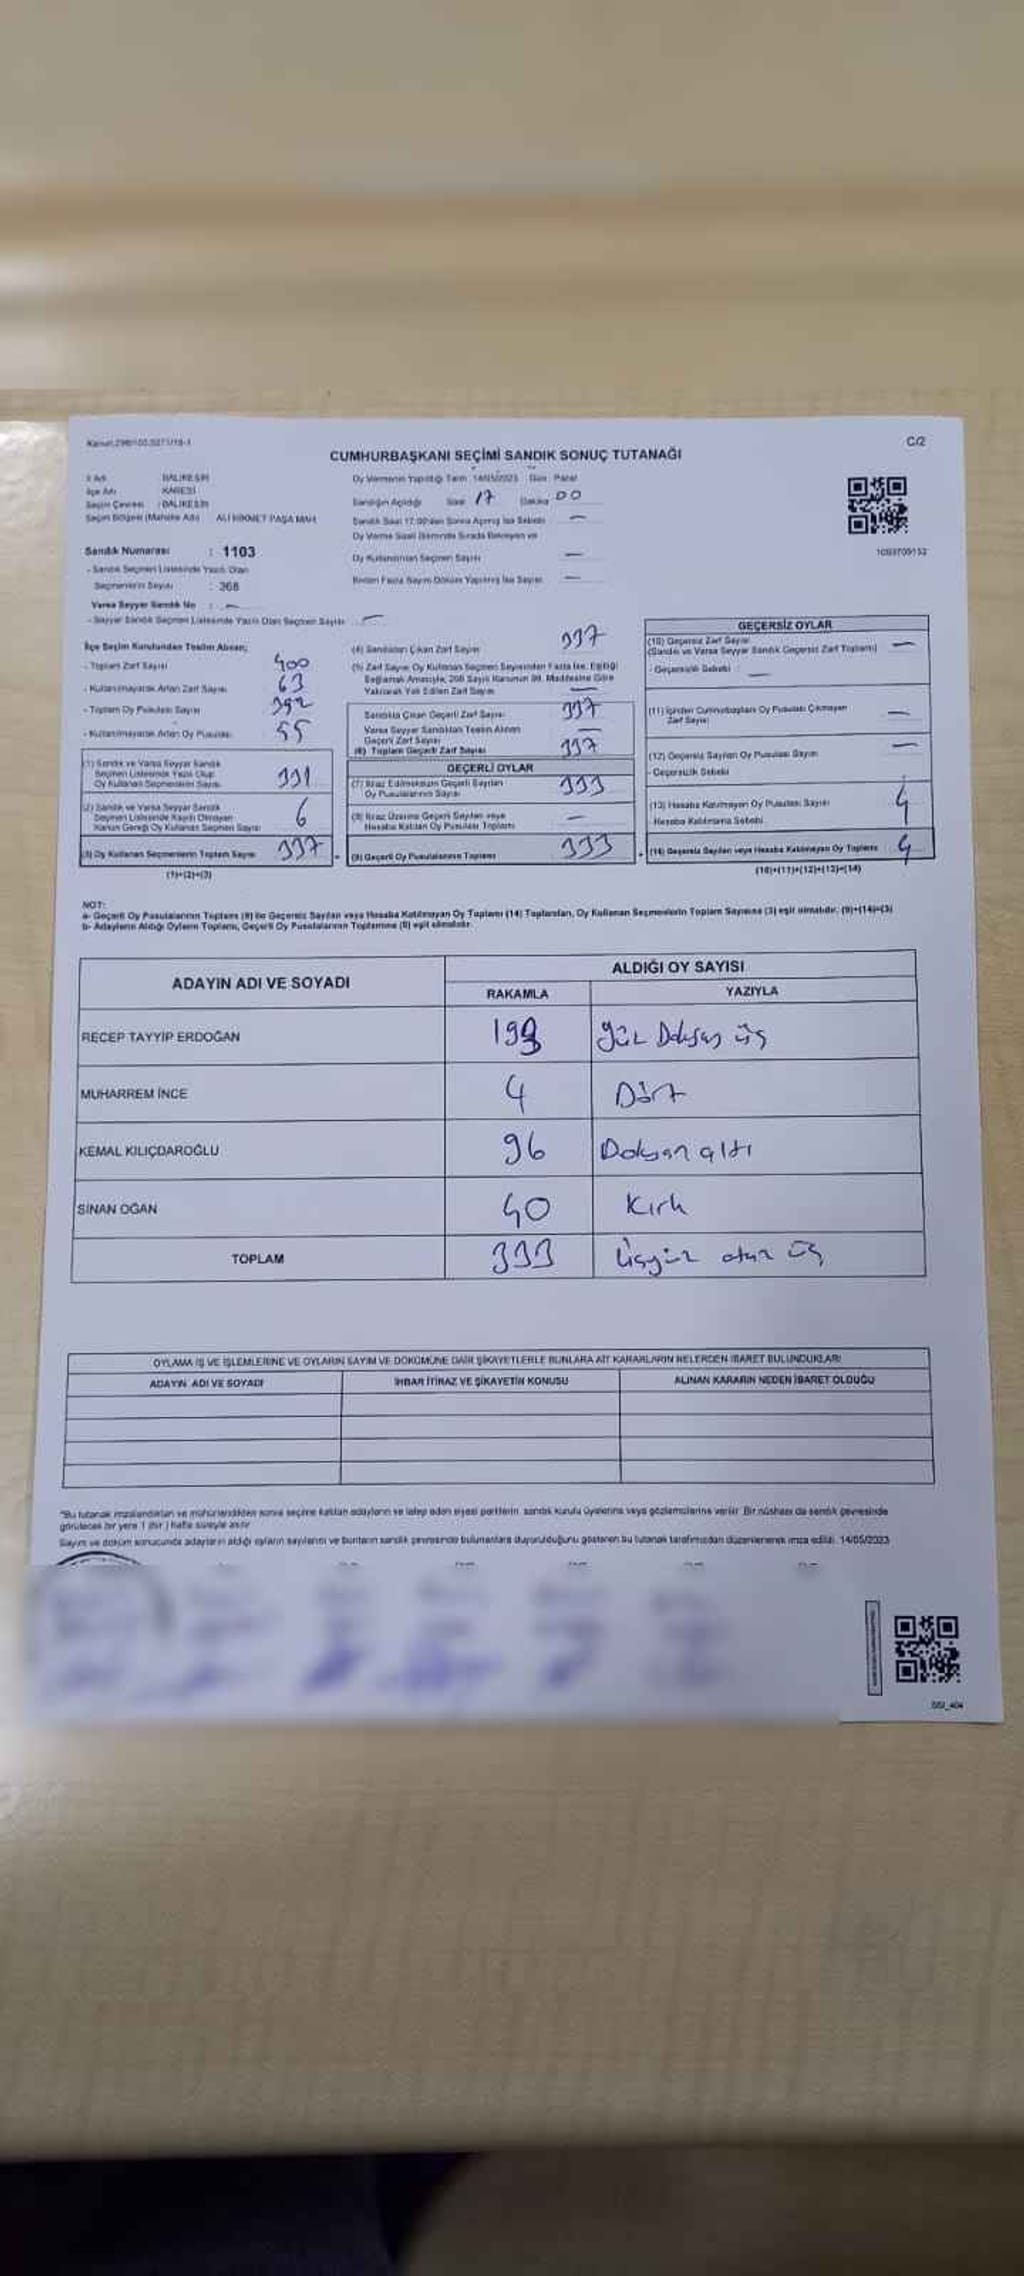 C/2
CUMHURBAŞKANI SEÇİMİ SANDIK SONUÇ TUTANAĞI
İl Adı : BALIKESİR
İlçe Adı : KARESİ
Seçim Çevresi : BALIKESİR
Seçim Bölgesi (Mahalle Adı) : ALİ HİKMET PAŞA MAH.
Sandık Numarası : 1103
- Sandık Seçmen Listesinde Yazılı Olan
Seçmenlerin Sayısı : 368
Varsa Seyyar Sandık No : —
- Seyyar Sandık Seçmen Listesinde Yazılı Olan Seçmen Sayısı : —
Oy Vermenin Yapıldığı Tarih : 14/05/2023 Gün : Pazar
Sandığın Açıldığı Saat 17 Dakika 00
Sandık Saat 17:00'den Sonra Açılmış İse Sebebi : —
Oy Verme Saati Bitiminde Sırada Bekleyen ve
Oy Kullandırılan Seçmen Sayısı : —
Birden Fazla Sayım Döküm Yapılmış İse Sayısı : —
1093709132
İlçe Seçim Kurulundan Teslim Alınan;
- Toplam Zarf Sayısı 400
- Kullanılmayarak Artan Zarf Sayısı 63
- Toplam Oy Pusulası Sayısı 392
- Kullanılmayarak Artan Oy Pusulası 55
(1) Sandık ve Varsa Seyyar Sandık
Seçmen Listesinde Yazılı Olup
Oy Kullanan Seçmenlerin Sayısı 331
(2) Sandık ve Varsa Seyyar Sandık
Seçmen Listesinde Kayıtlı Olmayan
Kanun Gereği Oy Kullanan Seçmen Sayısı 6
(3) Oy Kullanan Seçmenlerin Toplam Sayısı 337
(1)+(2)=(3)
(4) Sandıktan Çıkan Zarf Sayısı 337
(5) Zarf Sayısı Oy Kullanan Seçmen Sayısından Fazla İse, Eşitliği
Sağlamak Amacıyla, 298 Sayılı Kanunun 98. Maddesine Göre
Yakılarak Yok Edilen Zarf Sayısı —
Sandıkta Çıkan Geçerli Zarf Sayısı 337
Varsa Seyyar Sandıktan Teslim Alınan
Geçerli Zarf Sayısı —
(6) Toplam Geçerli Zarf Sayısı 337
GEÇERLİ OYLAR
(7) İtiraz Edilmeksizin Geçerli Sayılan
Oy Pusulalarının Sayısı 333
(8) İtiraz Üzerine Geçerli Sayılan veya
Hesaba Katılan Oy Pusulası Toplamı —
(9) Geçerli Oy Pusulalarının Toplamı 333
GEÇERSİZ OYLAR
(10) Geçersiz Zarf Sayısı —
(Sandık ve Varsa Seyyar Sandık Geçersiz Zarf Toplamı)
- Geçersizlik Sebebi : —
(11) İçinden Cumhurbaşkanı Oy Pusulası Çıkmayan
Zarf Sayısı —
(12) Geçersiz Sayılan Oy Pusulası Sayısı —
- Geçersizlik Sebebi
(13) Hesaba Katılmayan Oy Pusulası Sayısı 4
- Hesaba Katılmama Sebebi
(14) Geçersiz Sayılan veya Hesaba Katılmayan Oy Toplamı 4
(10)+(11)+(12)+(13)=(14)
NOT:
a- Geçerli Oy Pusulalarının Toplamı (9) ile Geçersiz Sayılan veya Hesaba Katılmayan Oy Toplamı (14) Toplamları, Oy Kullanan Seçmenlerin Toplam Sayısına (3) eşit olmalıdır. (9)+(14)=(3)
b- Adayların Aldığı Oyların Toplamı, Geçerli Oy Pusulalarının Toplamına (9) eşit olmalıdır.
ADAYIN ADI VE SOYADI ALDIĞI OY SAYISI
RAKAMLA YAZIYLA
RECEP TAYYİP ERDOĞAN 193 yüz Doksan üç
MUHARREM İNCE 4 Dört
KEMAL KILIÇDAROĞLU 96 Doksan altı
SİNAN OĞAN 40 Kırk
TOPLAM 333 Üçyüz otuz üç
OYLAMA İŞ VE İŞLEMLERİNE VE OYLARIN SAYIM VE DÖKÜMÜNE DAİR ŞİKAYETLERLE BUNLARA AİT KARARLARIN NELERDEN İBARET BULUNDUKLARI
ADAYIN ADI VE SOYADI İHBAR İTİRAZ VE ŞİKAYETİN KONUSU ALINAN KARARIN NEDEN İBARET OLDUĞU
*Bu tutanak imzalandıktan ve mühürlendikten sonra seçime katılan adayların ve talep eden siyasi partilerin, sandık kurulu üyelerine veya gözlemcilerine verilir. Bir nüshası da sandık çevresinde
görülecek bir yere 1 (bir) hafta süreyle asılır.
Sayım ve döküm sonucunda adayların aldığı oyların sayılarını ve bunların sandık çevresinde bulunanlara duyurulduğunu gösteren bu tutanak tarafımızdan düzenlenerek imza edildi. 14/05/2023